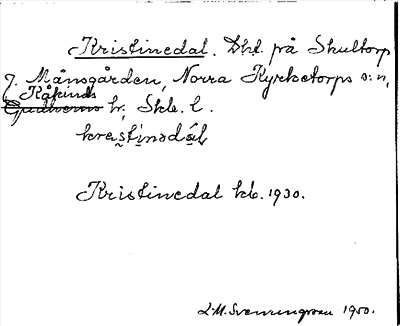 Kristinedal. Dht. på Skultorp
J. Månsgården, Norra Kyrketorps s:n,
Kåkinds
Gudhems hr, Skb. l.
krestinadál
Kristinedal kb. 1930.
L.M. Svenungsson 1950.